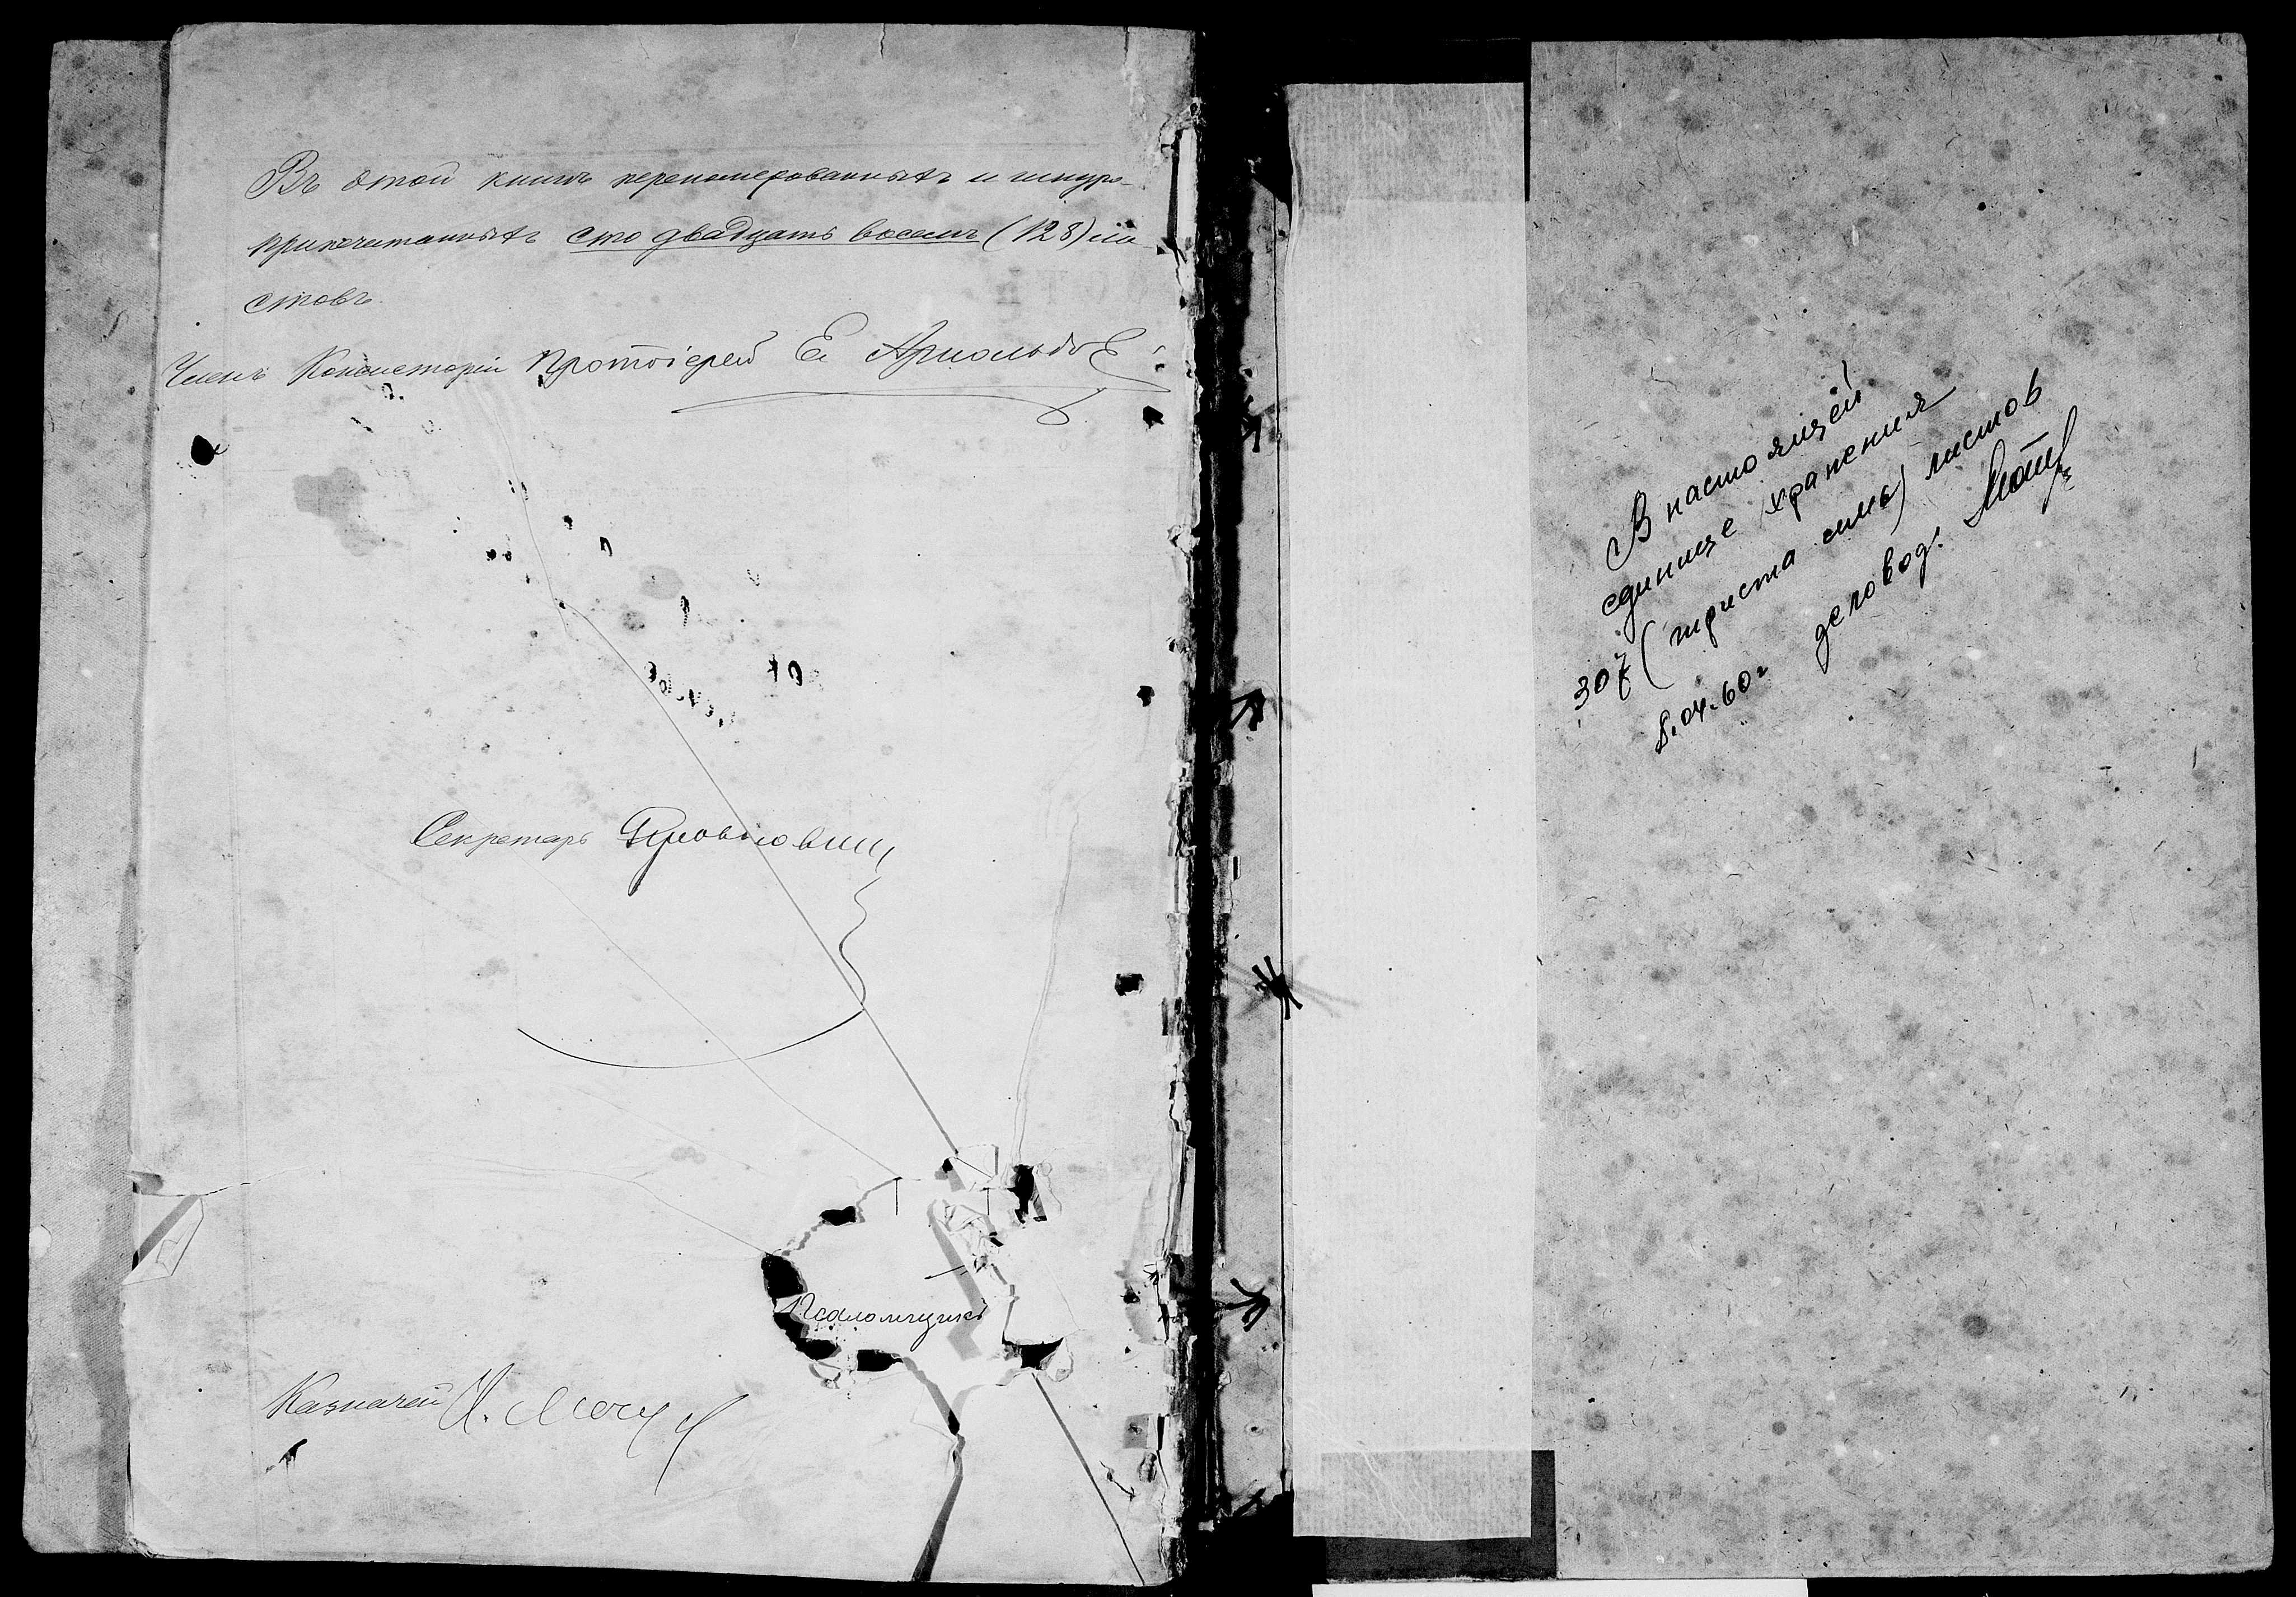 Въ этой книгѣ перенумерованныхъ и шнуро-
припечатанныхъ сто двадцать восемь (128) ли-
стовъ.
Членъ Консисторіи Протоіерей Е. Арнольдовъ
Секретарь
Псаломщикъ
Казначей
В настоящей
единице хранения
307 (триста семь) листов
8.04.60г деловод.